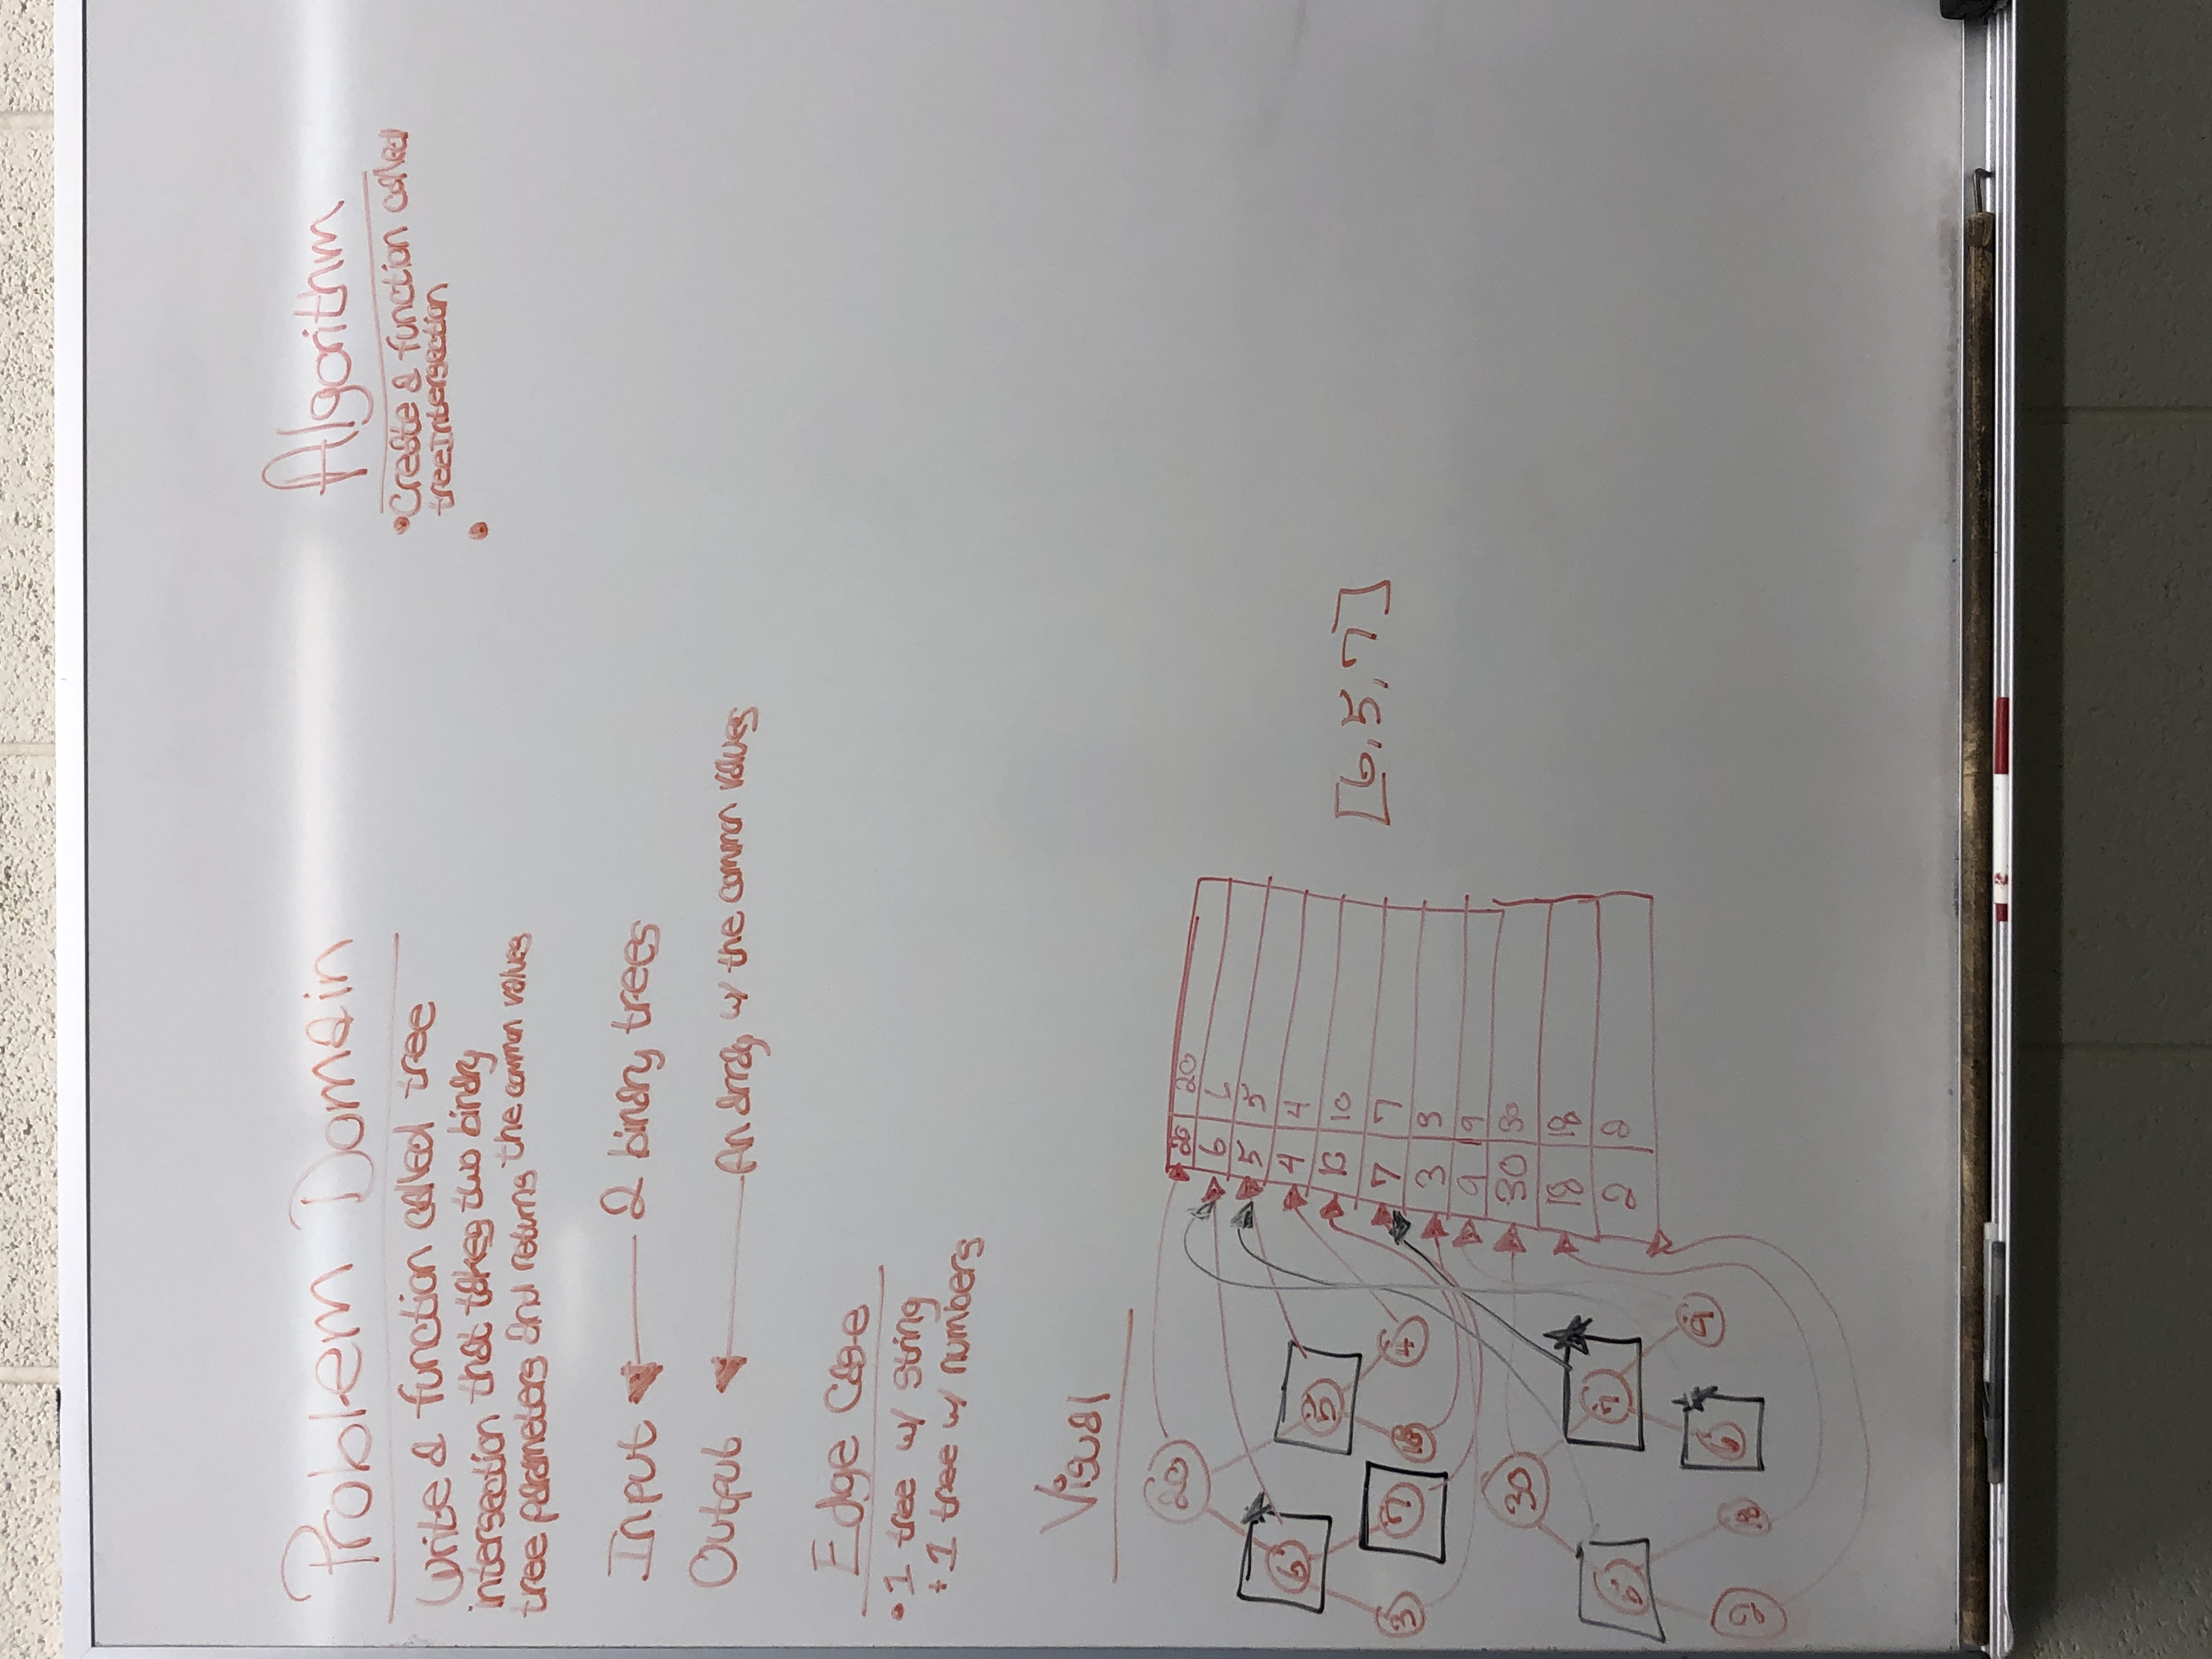 Problem Domain
Write a function called tree
intersection that takes two binary
tree parameters and returns the common values
Input
2 binary trees
Output
An array w/ the common values
Edge Case
• 1 tree w/ string
+ 1 tree w/ numbers
Visual
20
6
5
3
7
10
4
30
5
7
2
18
6
9
20 20
6 6
5 5
4 4
10 10
7 7
3 3
9 9
30 30
18 18
2 2
[6,5,7]
Algorithm
• Create a function called
treeIntersection
•